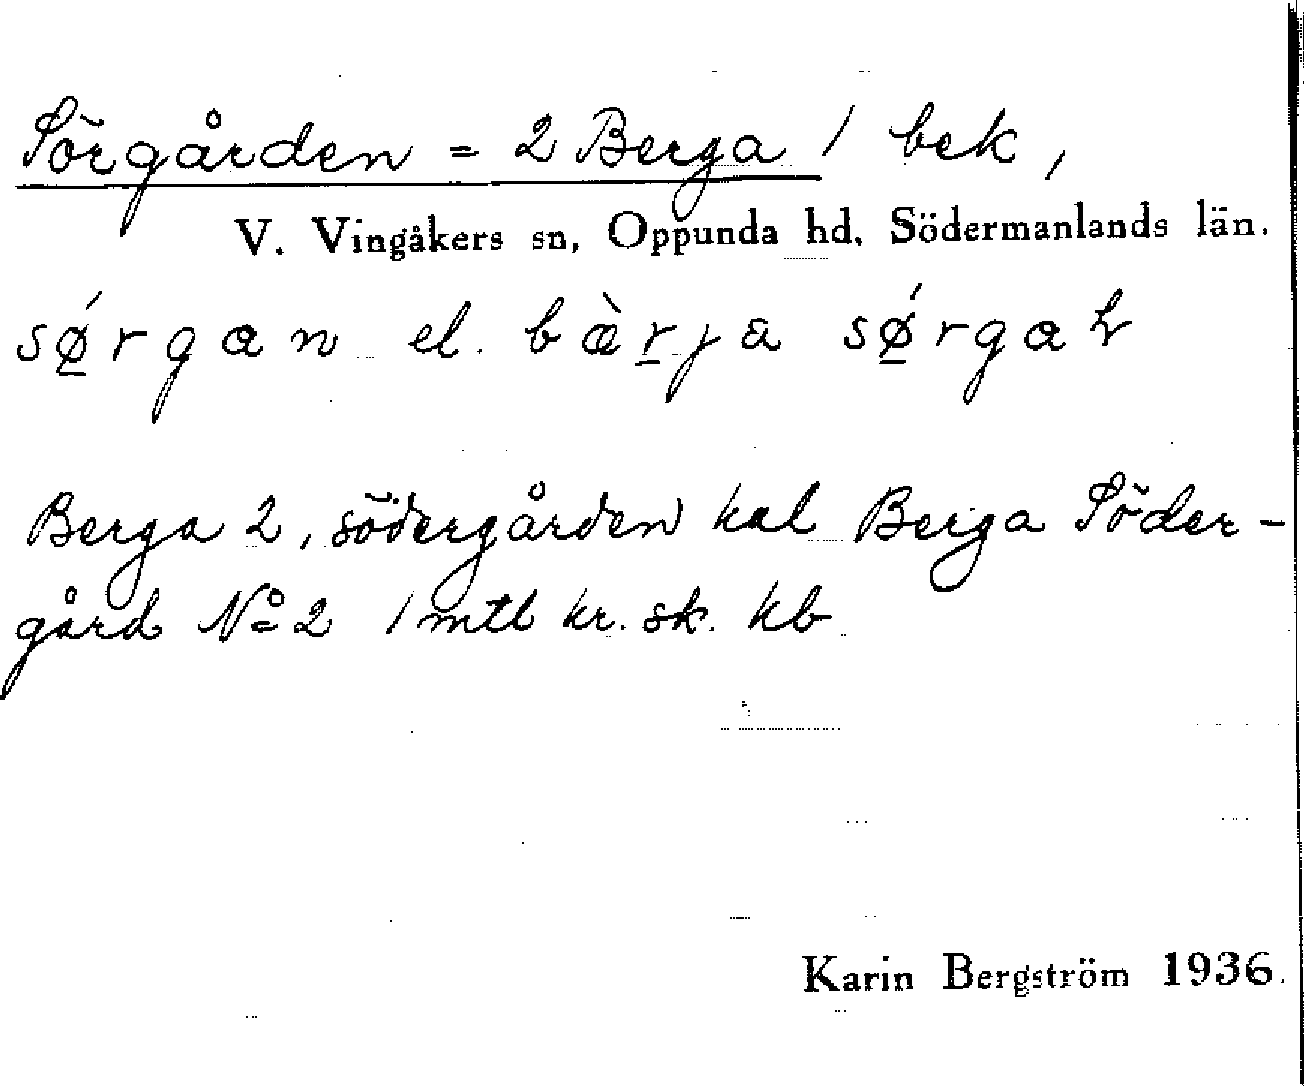 Sörgården = 2 Berga / bek,
V. Vingåkers sn, Oppunda hd, Södermanlands län.
sǿ̲rgan el. bæ̀r̲ja sǿ̲rgaɽ
Berga 2, södergården kal Berga Söder-
gård No 2 1 mtl kr. sk. kb
Karin Bergström 1936.